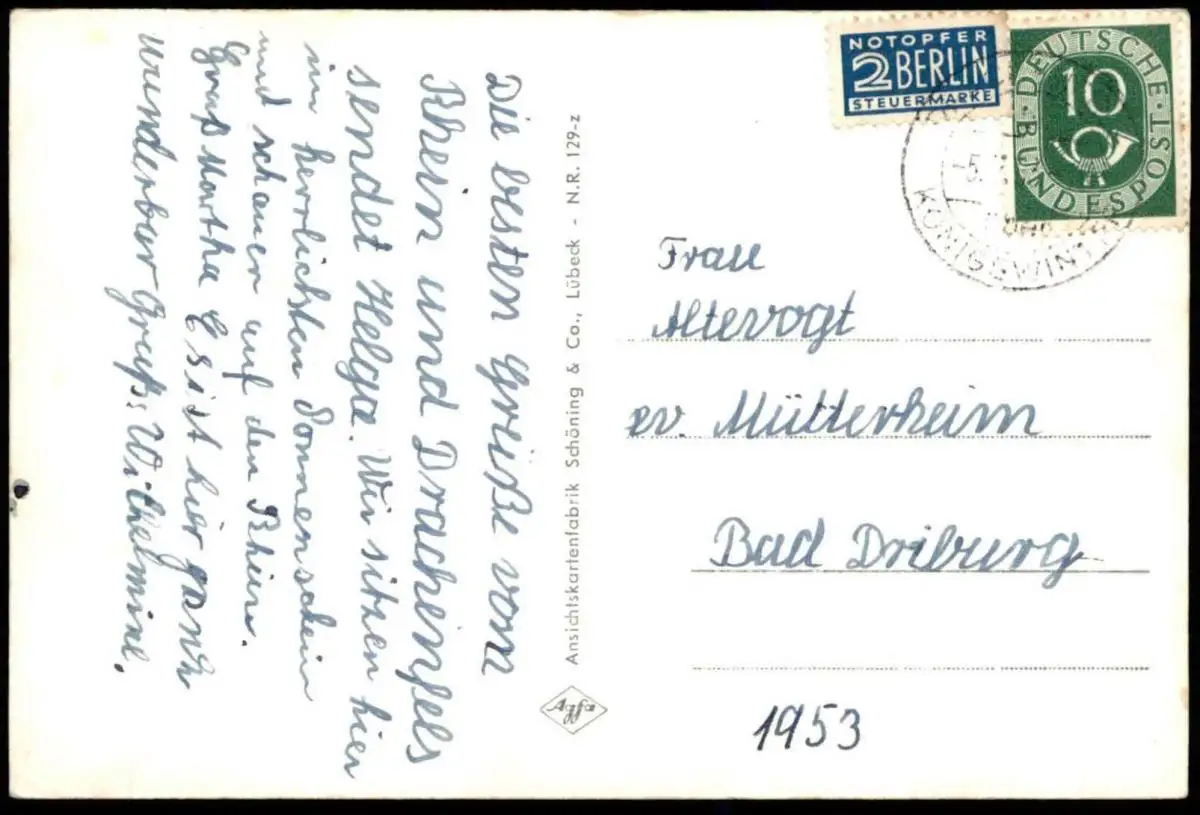 Die besten Grüße vom
Rhein und Drachenfels
sendet Helga. Wir sitzen hier
im herrlichsten Sonnenschein
und schauen auf den Rhein.
Gruß Martha Es ist hier ganz
wunderbar Gruß: Wilhelmine.
Ansichtskartenfabrik Schöning & Co., Lübeck - N.R. 129-z
Agfa
NOTOPFER
2 BERLIN
STEUERMARKE
DEUTSCHE BUNDESPOST
10
-5.
KÖNIGSWINT
Frau
Altevogt
ev. Mütterheim
Bad Driburg
1953